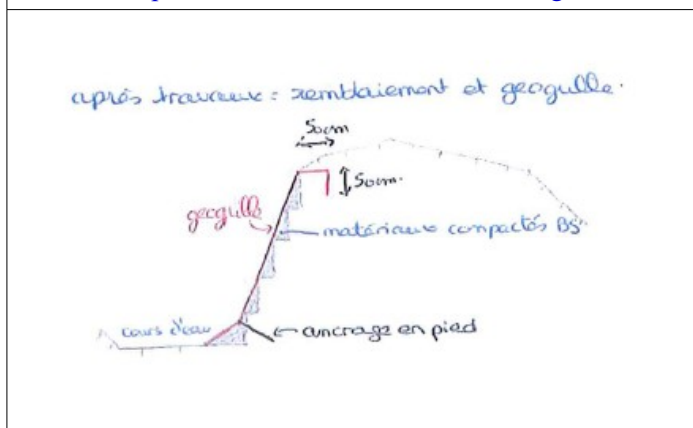 après travaux = remblaiement et geogrille.
50cm
50cm.
geogrille
matériaux compactés B5
cours d'eau
ancrage en pied